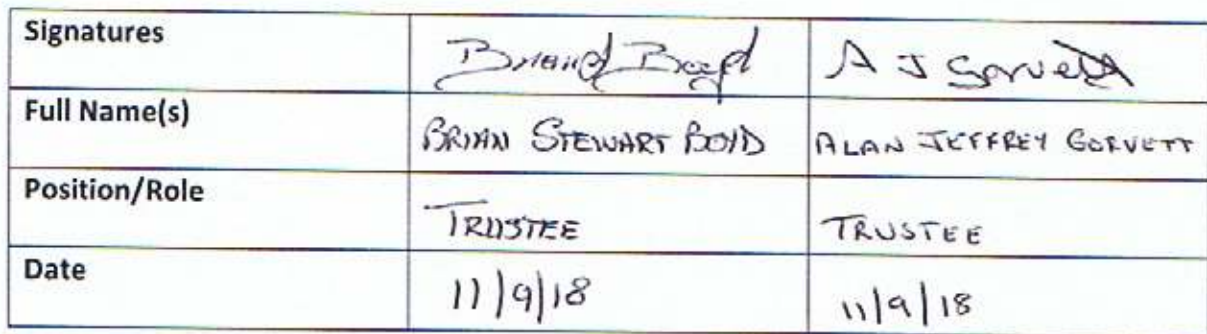 Signatures Brian S Boyd A J Gorvett
Full Name(s) BRIAN STEWART BOYD ALAN JEFFREY GORVETT
Position/Role TRUSTEE TRUSTEE
Date 11/9/18 11/9/18